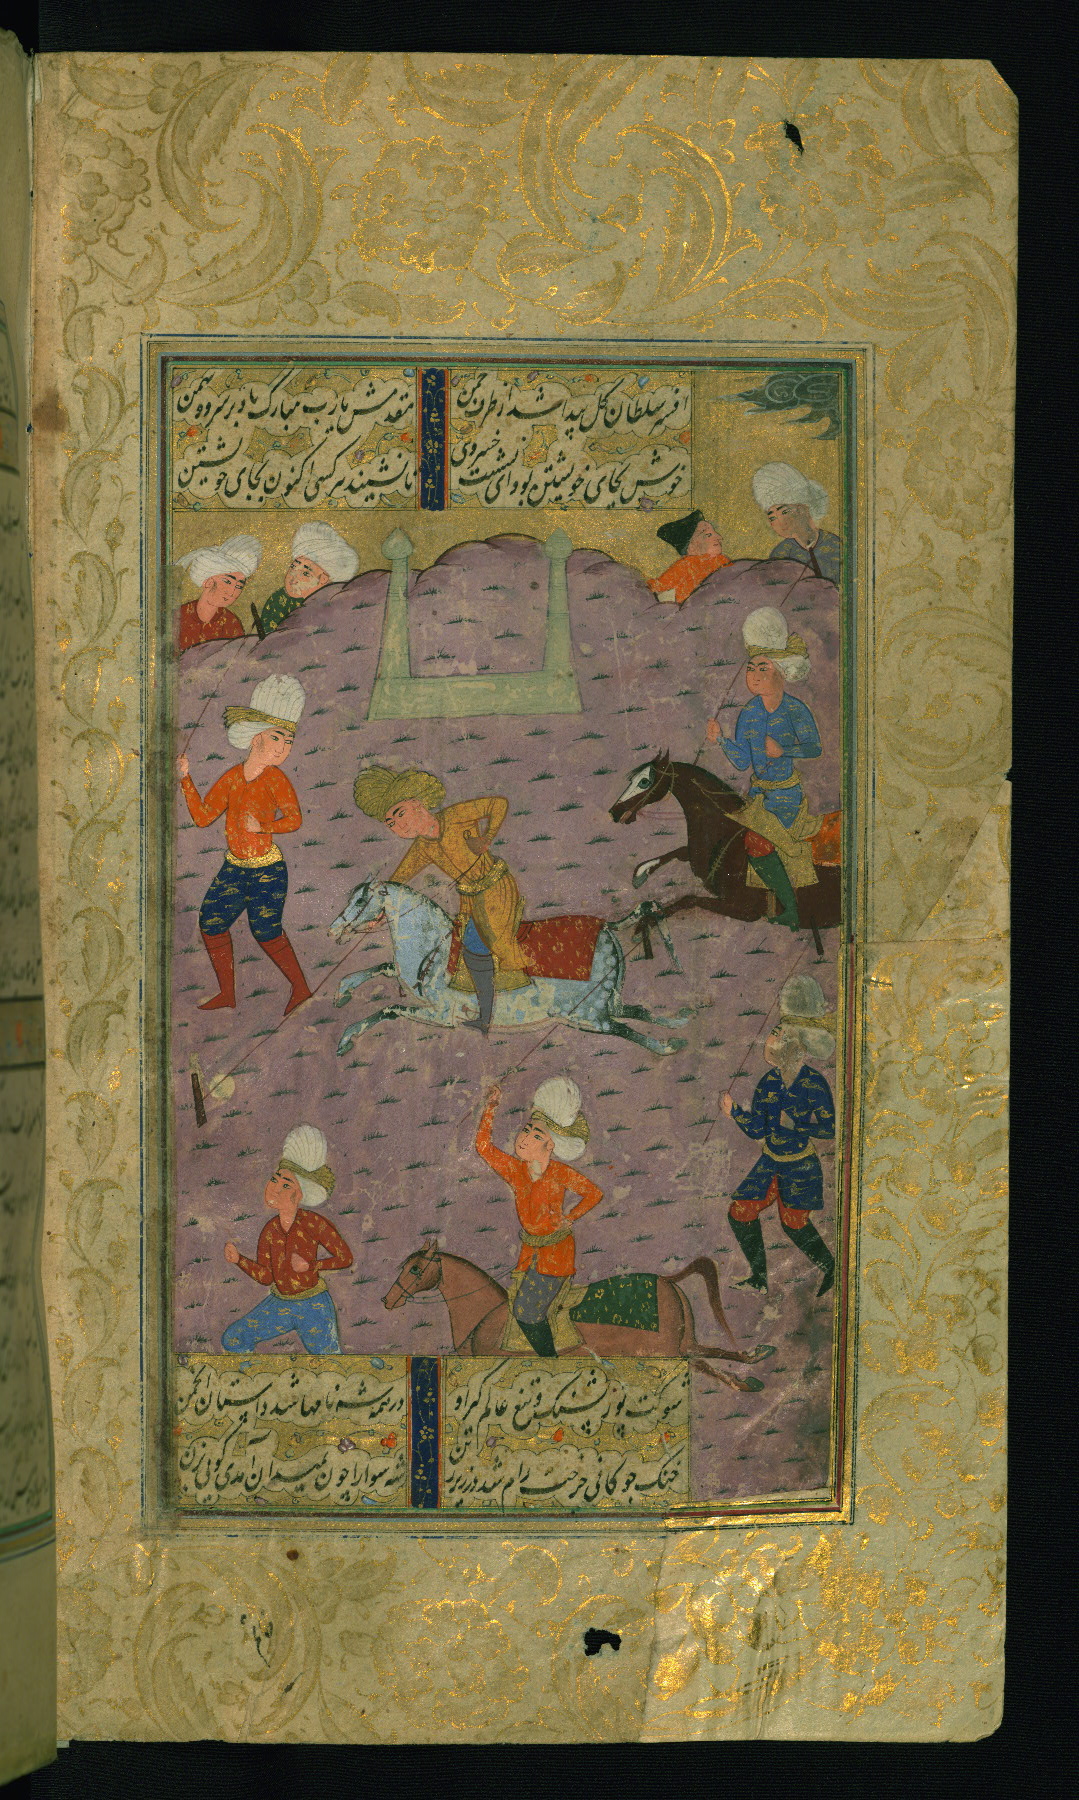 افسر سلطان گل پیدا شد از طرف چمن
مقدمش یارب مبارک باد بر سرو و سمن
خوش بجای خویشتن بود این نشست خسروی
تا نشیند هر کسی اکنون بجای خویشتن
شوکت پور پشنگ و تیغ عالم گیر او
در همه شهنامها شد داستان انجمن
خنگ چوگانی چرخت رام شد در زیر زین
شهسوارا چون بمیدان آمدی گویی بزن